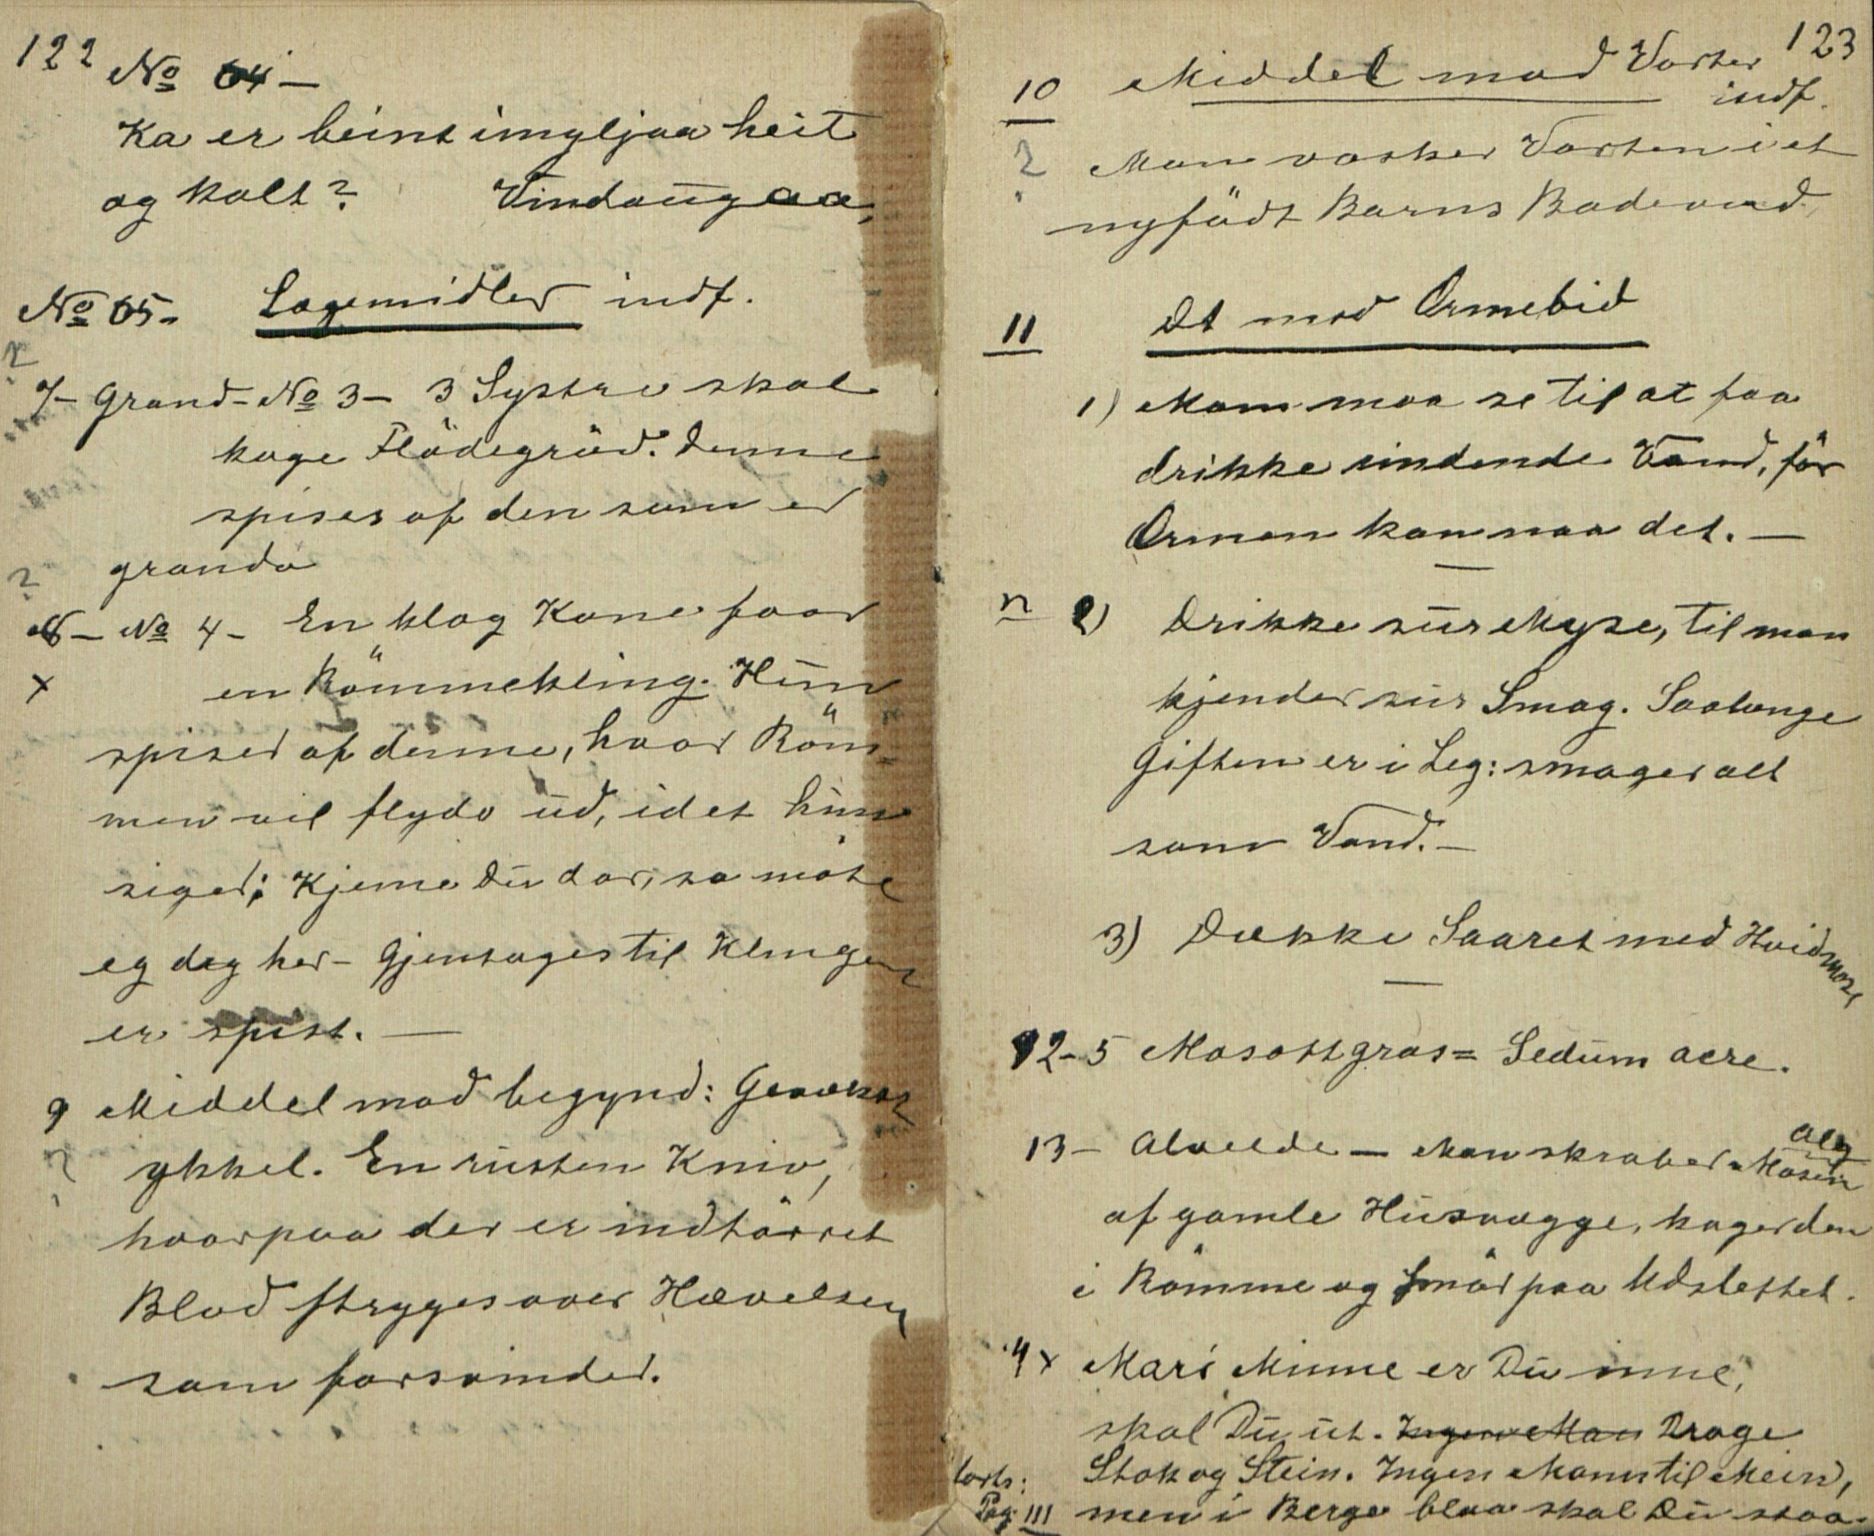 122
No 64 –
Ka er beint imyljaa heit
og kalt? Vindaugaa,
No 65. Lægemidler indf.
?
7 – Grand – No 3 – 3 Systre skal
koge Flödegröd. Denne
spises af den som er
granda
?
8 – No 4 – En klog Kone faar
x en Römmekling. Hun
spiser af denne, hvor Röm-
men vil flyde ud, idet hun
siger: Kjeme Du dar, so möte
eg deg her – Gjentages til Klingen
er spist. —
9 Middel mod begynd: Gevækst
? ykkel. En rusten Kniv,
hvorpaa der er indtörret
Blod stryges over Hævelsen
som forsvinder.
123
10 Middel mod Vorter
indf.
? Man vasker Vorten i et
nyfödt Barns Badevand.
11 Dt mod Ormebid
1) Man maa se til at faa
drikke rindende Vand, för
Ormen kan naa det. —
n 2) Drikke sur Myse, til man
kjender sur Smag. Saalænge
Giften er i Leg: smager alt
som Vand. –
3) Dække Saaret med Hvidmose
12 – 5 Mosottgras = Sedum acre.
13 – Alveld – Man skraber Alv Mosen
af gamle Husvægge, koger den
i Römme og Smör paa Udslettet.
14 x Mari Minne er Du inne,
skal Du ut. Ingen Man Drage
Stok og Stein. Ingen Mann til Mein,
forts: Pag III men i Berge blaa skal Du staa.